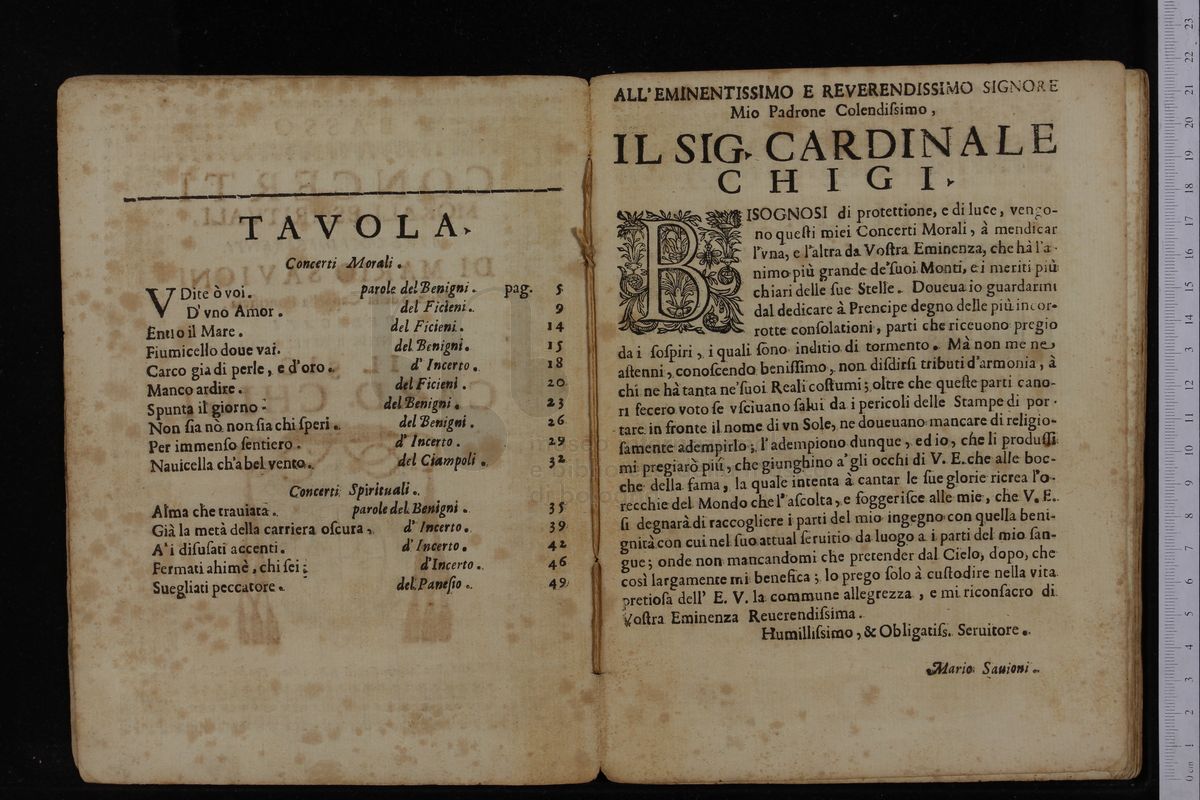 TAVOLA.
Concerti Morali.
VDite ò voi. parole del Benigni. pag. 5
D'vno Amor. del Ficieni. 9
Entro il Mare. del Ficieni. 14
Fiumicello doue vai. del Benigni. 15
Carco gia di perle, e d'oro. d'Incerto. 18
Manco ardire. del Ficieni. 20
Spunta il giorno. del Benigni. 23
Non sia nò non sia chi speri. del Benigni. 26
Per immenso sentiero. d'Incerto. 29
Nauicella ch'a bel vento. del Ciampoli. 32
Concerti Spirituali.
Alma che trauiata. parole del Benigni. 35
Già la metà della carriera oscura, d'Incerto. 39
A'i disusati accenti. d'Incerto. 42
Fermati ahimè, chi sei; d'Incerto. 46
Suegliati peccatore. del Panesio. 49
ALL'EMINENTISSIMO E REVERENDISSIMO SIGNORE
Mio Padrone Colendissimo,
IL SIG. CARDINALE
CHIGI.
BISOGNOSI di protettione, e di luce, vengo-
no questi miei Concerti Morali, à mendicar
l'vna, e l'altra da Vostra Eminenza, che hà l'a-
nimo più grande de'suoi Monti, e i meriti più
chiari delle sue Stelle. Doueua io guardarmi
dal dedicare à Prencipe degno delle più incor-
rotte consolationi, parti che riceuono pregio
da i sospiri, i quali sono inditio di tormento. Mà non me ne
astenni, conoscendo benissimo, non disdirsi tributi d'armonia, à
chi ne hà tanta ne'suoi Reali costumi; oltre che queste parti cano-
ri fecero voto se vsciuano salui da i pericoli delle Stampe di por-
tare in fronte il nome di vn Sole, ne doueuano mancare di religio-
samente adempirlo; l'adempiono dunque, ed io, che li produssi
mi pregiarò più, che giunghino a'gli occhi di V. E. che alle boc-
che della fama, la quale intenta à cantar le sue glorie ricrea l'o-
recchie del Mondo che l'ascolta, e soggerisce alle mie, che V. E.
si degnarà di raccogliere i parti del mio ingegno con quella beni-
gnità con cui nel suo attual seruitio da luogo a i parti del mio san-
gue; onde non mancandomi che pretender dal Cielo, dopo, che
così largamente mi benefica; lo prego solo à custodire nella vita
pretiosa dell' E. V. la commune allegrezza, e mi riconsacro di
Vostra Eminenza Reuerendissima.
Humillissimo, & Obligatiss. Seruitore.
Mario Sauioni.